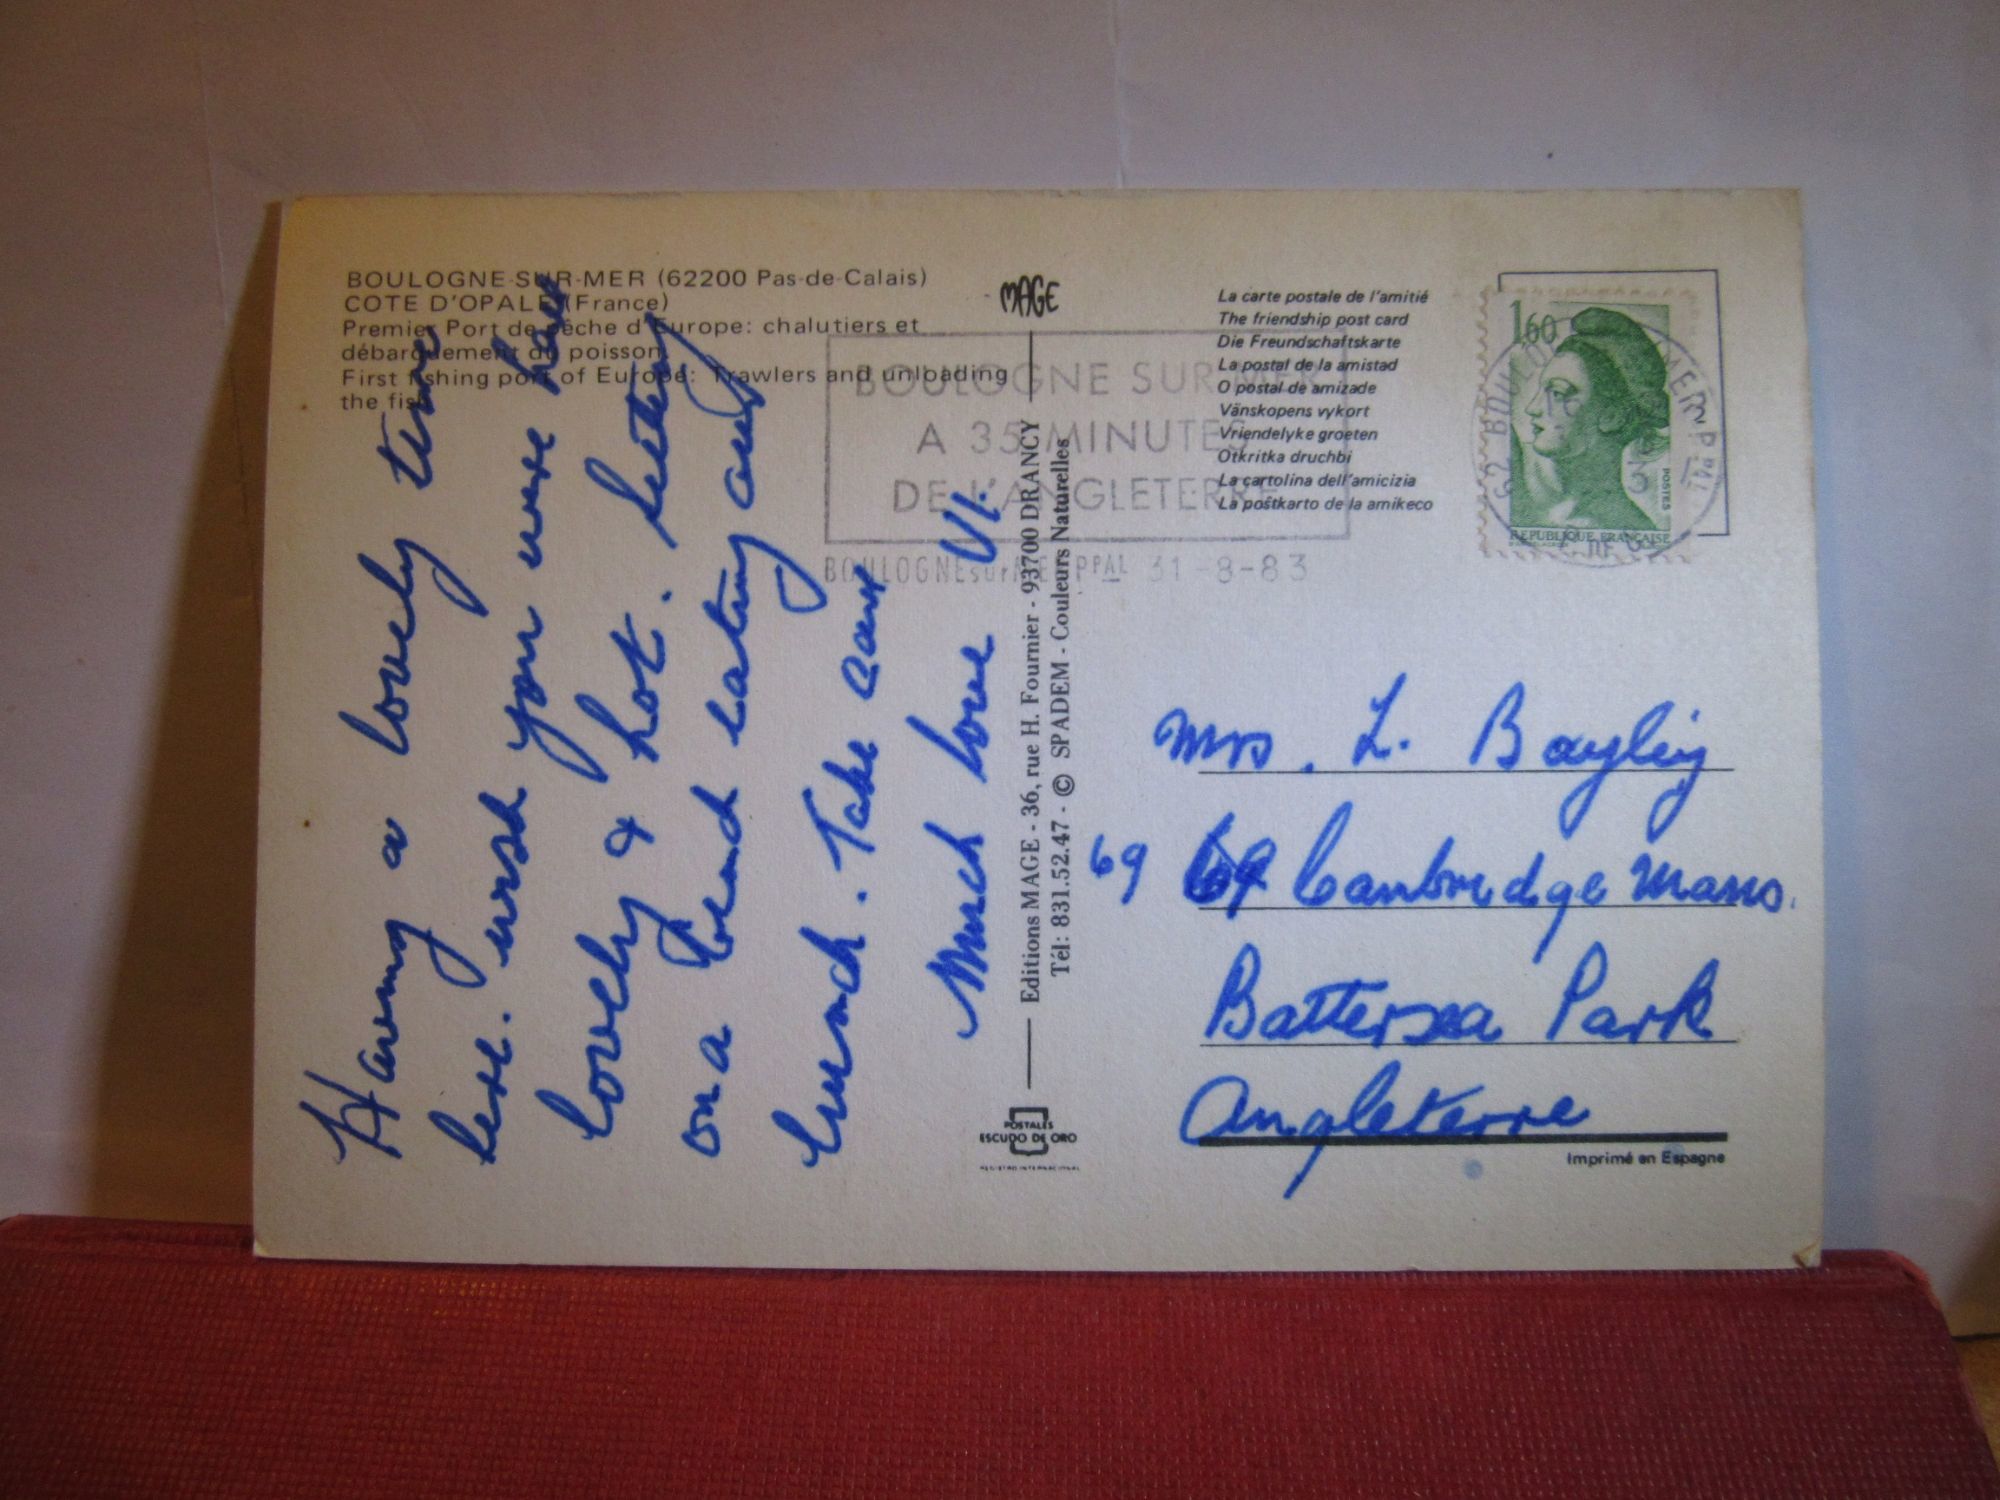 BOULOGNE-SUR-MER (62200 Pas-de-Calais)
COTE D'OPALE (France)
Premier Port de pêche d'Europe: chalutiers et
débarquement du poisson.
First fishing port of Europe: Trawlers and unloading
the fish.
Having a lovely time
here. wish you were here
lovely & hot. Sitting
on a bend eating our
lunch. Take care
Much love Vi.
MAGE
Editions MAGE - 36, rue H. Fournier - 93700 DRANCY
Tél: 831.52.47 - © SPADEM - Couleurs Naturelles
POSTALES
ESCUDO DE ORO
REGISTRO INTERNACIONAL
BOULOGNE SUR MER
A 35 MINUTES
DE L'ANGLETERRE
BOULOGNE sur MER PPAL 31-8-83
La carte postale de l'amitié
The friendship post card
Die Freundschaftskarte
La postal de la amistad
O postal de amizade
Vänskopens vykort
Vriendelyke groeten
Otkritka druchbi
La cartolina dell'amicizia
La poŝtkarto de la amikeco
1,60
POSTES
REPUBLIQUE FRANÇAISE
62 BOULOGNE MER PPAL
Mrs. L. Bayley
69 69 Cambridge Mans.
Battersea Park
Angleterre
Imprimé en Espagne